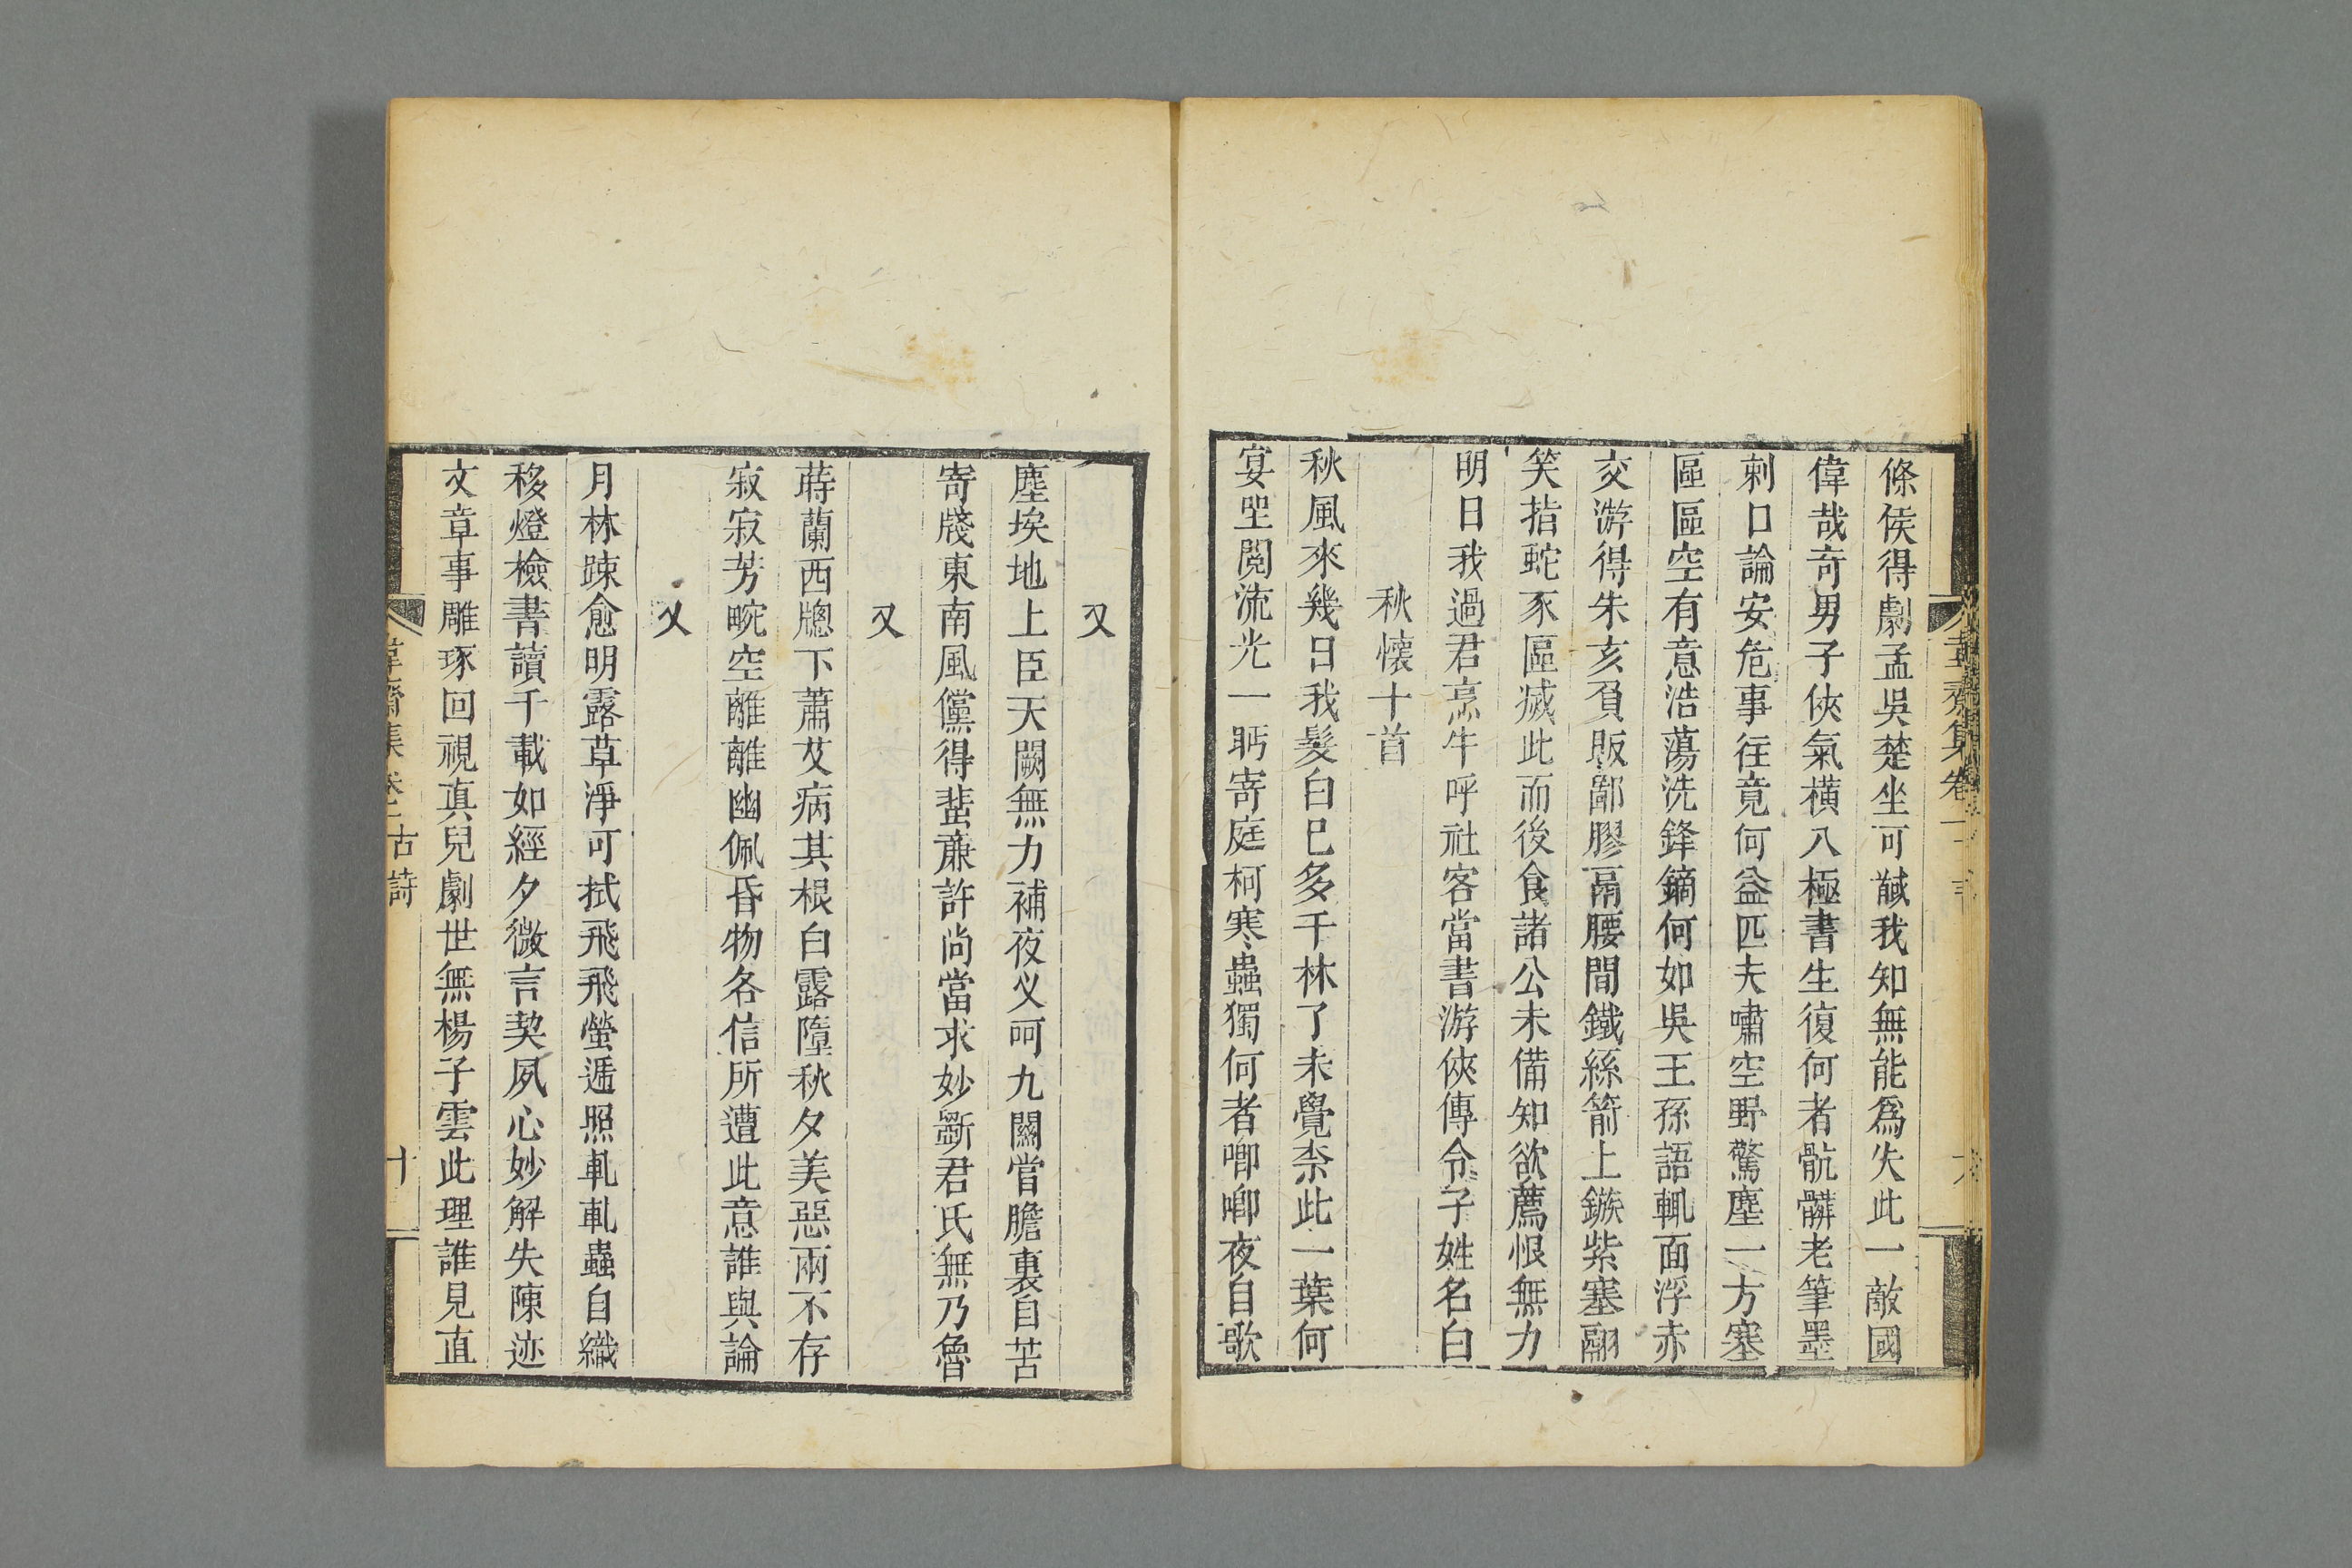 條侯得劇孟吳楚坐可馘我知無能爲失此一敵國
偉哉奇男子俠氣橫八極書生復何者骯髒老筆墨
刺口論安危事往竟何益匹夫嘯空野驚塵一方塞
區區空有意浩蕩洗鋒鏑何如吳王孫語輒面浮赤
交游得朱亥負販鄙膠鬲腰間鐵絲箭上鏃紫塞翮
笑指蛇豕區滅此而後食諸公未備知欲薦恨無力
明日我過君烹牛呼社客當書游俠傳令子姓名白
秋懷十首
秋風來幾日我髮白已多千林了未覺柰此一葉何
宴坐閱流光一眄寄庭柯寒蟲獨何者喞喞夜自歌
又
塵埃地上臣天闕無力補夜义呵九關嘗膽裏自苦
寄牋東南風儻得蜚廉許尚當求妙斵君氏無乃魯
又
蒔蘭西牕下蕭艾病其根白露墮秋夕美惡兩不存
寂寂芳畹空離離幽佩昏物各信所遭此意誰與論
又
月林踈愈明露草淨可拭飛飛螢遞照軋軋蟲自織
移燈檢書讀千載如經夕微言契夙心妙解失陳迹
文章事雕琢回視真兒劇世無楊子雲此理誰見直
韋齋集 卷一 古詩 十